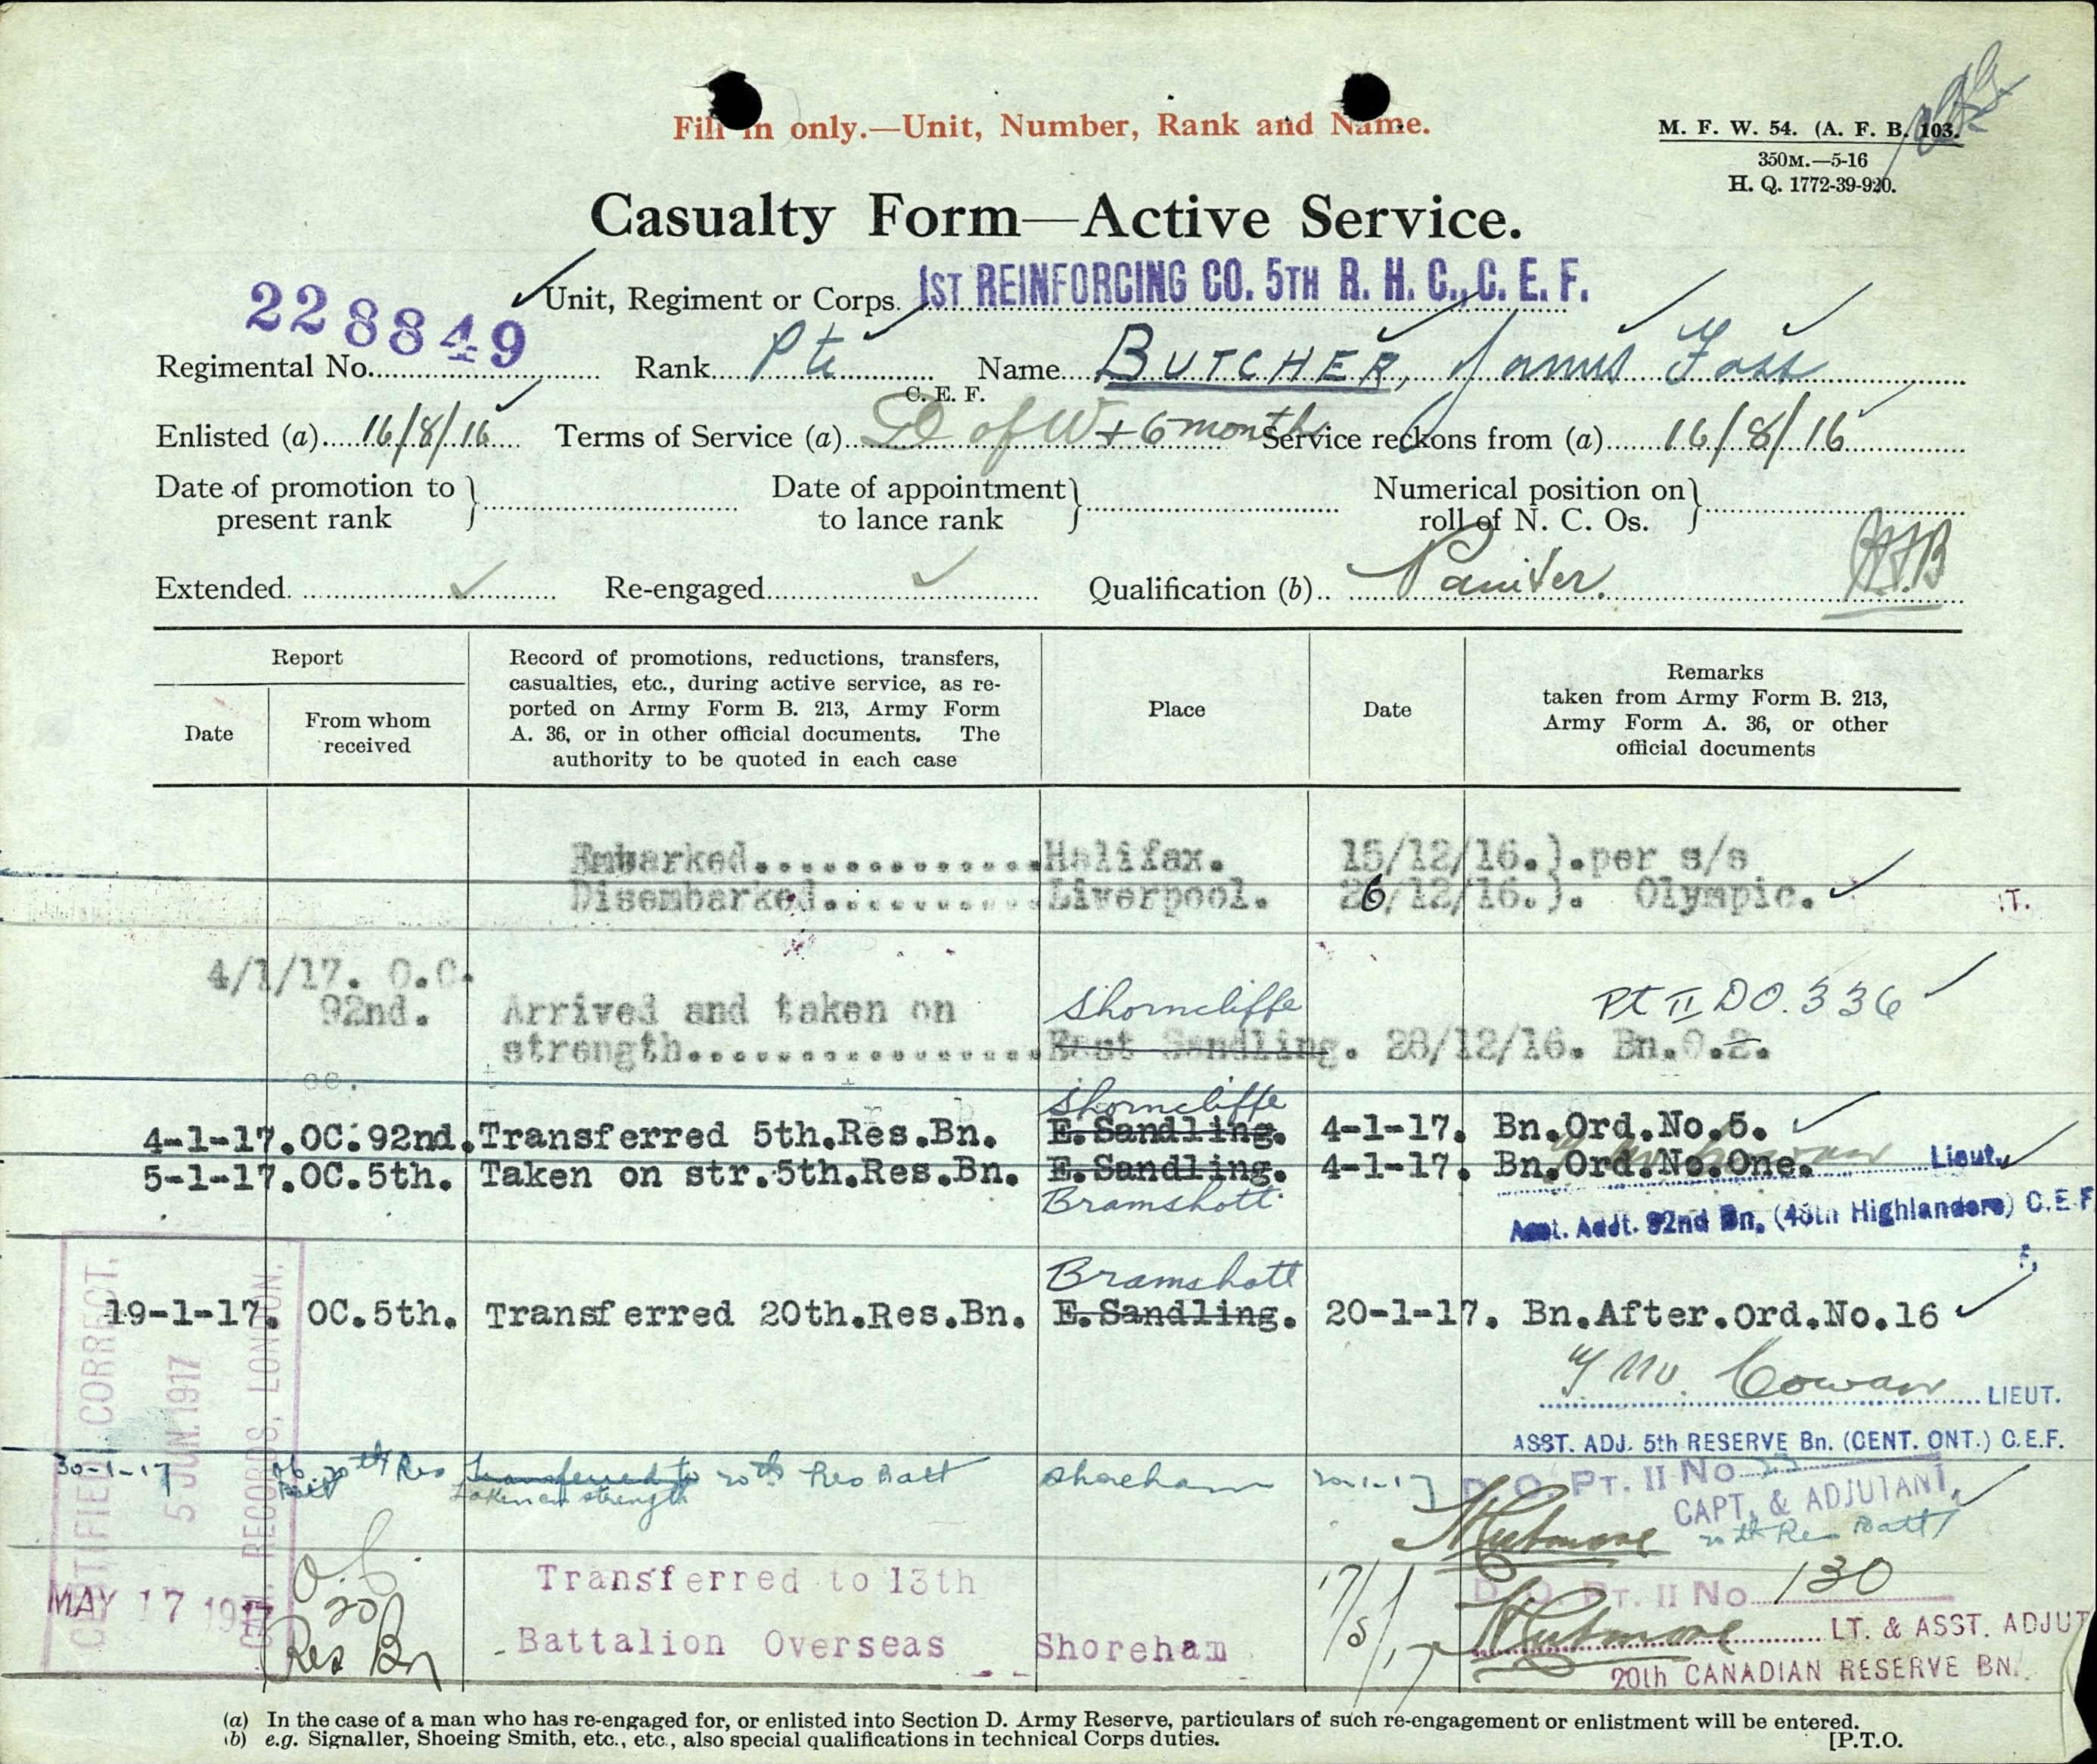 Fill in only.—Unit, Number, Rank and Name.
M. F. W. 54. (A. F. B. 103.
350M.—5-16
H. Q. 1772-39-920.
Casualty Form—Active Service.
228849
Unit, Regiment or Corps. 1ST REINFORCING CO. 5TH R. H. C., C. E. F.
Regimental No. Rank Pte Name BUTCHER, James Foss
C. E. F.
Enlisted (a) 16/8/16 Terms of Service (a) D of W + 6 months Service reckons from (a) 16/8/16
Date of promotion to present rank } Date of appointment to lance rank } Numerical position on roll of N. C. Os. }
Extended. Re-engaged Qualification (b) Paniter.
Report
Date
From whom received
Record of promotions, reductions, transfers, casualties, etc., during active service, as re-
ported on Army Form B. 213, Army Form A. 36, or in other official documents. The
authority to be quoted in each case
Place
Date
Remarks
taken from Army Form B. 213,
Army Form A. 36, or other
official documents
Embarked..............Halifax. 15/12/16.).per s/s
Disembarked...........Liverpool. 26/12/16.). Olympic.
.T.
4/1/17. O.C.
92nd. Arrived and taken on Shorncliffe Pt II DO. 336
strength..................East Sandling. 28/12/16. Bn.O.2.
oc.
Shorncliffe
4-1-17. OC.92nd. Transferred 5th.Res.Bn. E.Sandling. 4-1-17. Bn.Ord.No.5.
5-1-17. OC.5th. Taken on str.5th.Res.Bn. E.Sandling. 4-1-17. Bn.Ord.No.One. Lieut.
Bramshott
Asst. Addt. 92nd Bn. (48th Highlanders) C.E.F
Bramshott
19-1-17. OC.5th. Transferred 20th.Res.Bn. E.Sandling. 20-1-17. Bn.After.Ord.No.16
Cowan LIEUT.
ASST. ADJ. 5th RESERVE Bn. (CENT. ONT.) C.E.F.
30-1-17 20th Res Transferred to 20th Res Batt Shoreham 20-1-17 D. O. PT. II No
Batt Taken on strength
CAPT. & ADJUTANT,
20th Res Batt
O.C. Transferred to 13th 17/5/17 D. O. PT. II No 130
MAY 17 1917 20 Res Bn Battalion Overseas Shoreham LT. & ASST. ADJUT
20th CANADIAN RESERVE BN.
CERTIFIED CORRECT.
5 JUN. 1917
RECORDS, LONDON.
(a) In the case of a man who has re-engaged for, or enlisted into Section D. Army Reserve, particulars of such re-engagement or enlistment will be entered.
(b) e.g. Signaller, Shoeing Smith, etc., etc., also special qualifications in technical Corps duties.
[P.T.O.